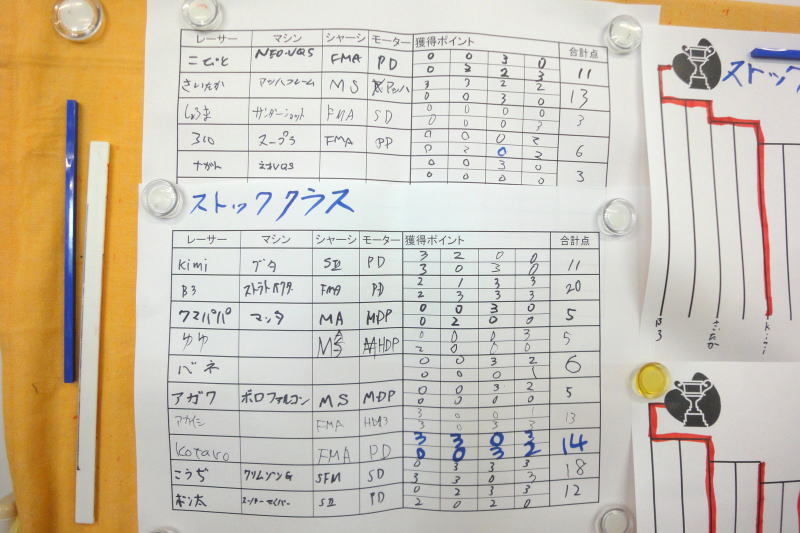 レーサー マシン シャーシ モーター 獲得ポイント 合計点
こてと NEO-VQS FMA PD 0 0 3 0 11
0 3 2 3
さいたか マッハフレーム MS マッハ 3 3 2 2 13
0 0 3 0
サンダーショット FMA SD 0 0 0 0 3
0 0 0 3
310 スープラ FMA PD 0 0 0 2 6
0 2 0 2
ながん ネオVQS 0 0 3 0 3
0 0 0 0
ストッククラス
ストック
レーサー マシン シャーシ モーター 獲得ポイント 合計点
kimi ブタ SⅡ PD 3 2 0 0 11
3 0 3 0
B3 ストラトベクター FMA PD 2 1 3 3 20
2 3 3 3
クマパパ マッタ MA MDP 0 0 3 0 5
0 2 0 0
ゆゆ HDP 0 0 0 3 5
2 0 0 0
バネ 0 0 3 2 6
0 0 0 1
アガワ ポロファルコン MS MDP 0 0 3 2 5
0 0 0 0
アカイシ FMA 3 0 0 1 13
3 0 3 3
kotaro FMA PD 3 3 0 3 14
0 0 3 2
こうぢ クリムゾンG SFM SD 0 3 3 3 18
3 3 0 3
ポン太 SⅡ PD 0 2 3 3 12
2 0 2 0
B3
さいたか
kimi